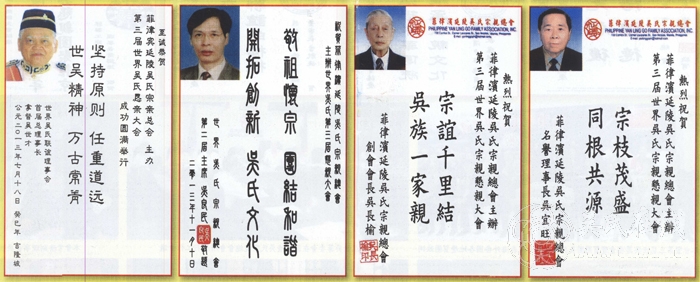 至诚恭贺
菲律宾延陵吴氏宗亲总会 主办
第三届世界吴氏恳亲大会
成功圆满举行
坚持原则 任重道远
世吴精神 万古常青
世界吴氏联谊理事会
首届总理事长
拿督吴世才
公元二〇一三年七月十八日 癸巳年 吉隆坡
敬賀菲律濱延陵吳氏宗親總會
主辦世界吳氏第三屆懇親大會
敬祖懷宗 團結和諧
開拓創新 吳氏文化
世界吳氏宗親總會
第二屆主席 吳良民 敬題
二零一三年十一月十日
菲律濱延陵吳氏宗親總會
PHILIPPINE YAN LING GO FAMILY ASSOCIATION, INC.
熱烈祝賀
菲律濱延陵吳氏宗親總會主辦
第三屆世界吳氏宗親懇親大會
宗誼千里結
吳族一家親
菲律濱延陵吳氏宗親總會
創會會長吳長榆
菲律濱延陵吳氏宗親總會
PHILIPPINE YAN LING GO FAMILY ASSOCIATION, INC.
熱烈祝賀
菲律濱延陵吳氏宗親總會主辦
第三屆世界吳氏宗親懇親大會
宗枝茂盛
同根共源
菲律濱延陵吳氏宗親總會
名譽理事長吳宜旺